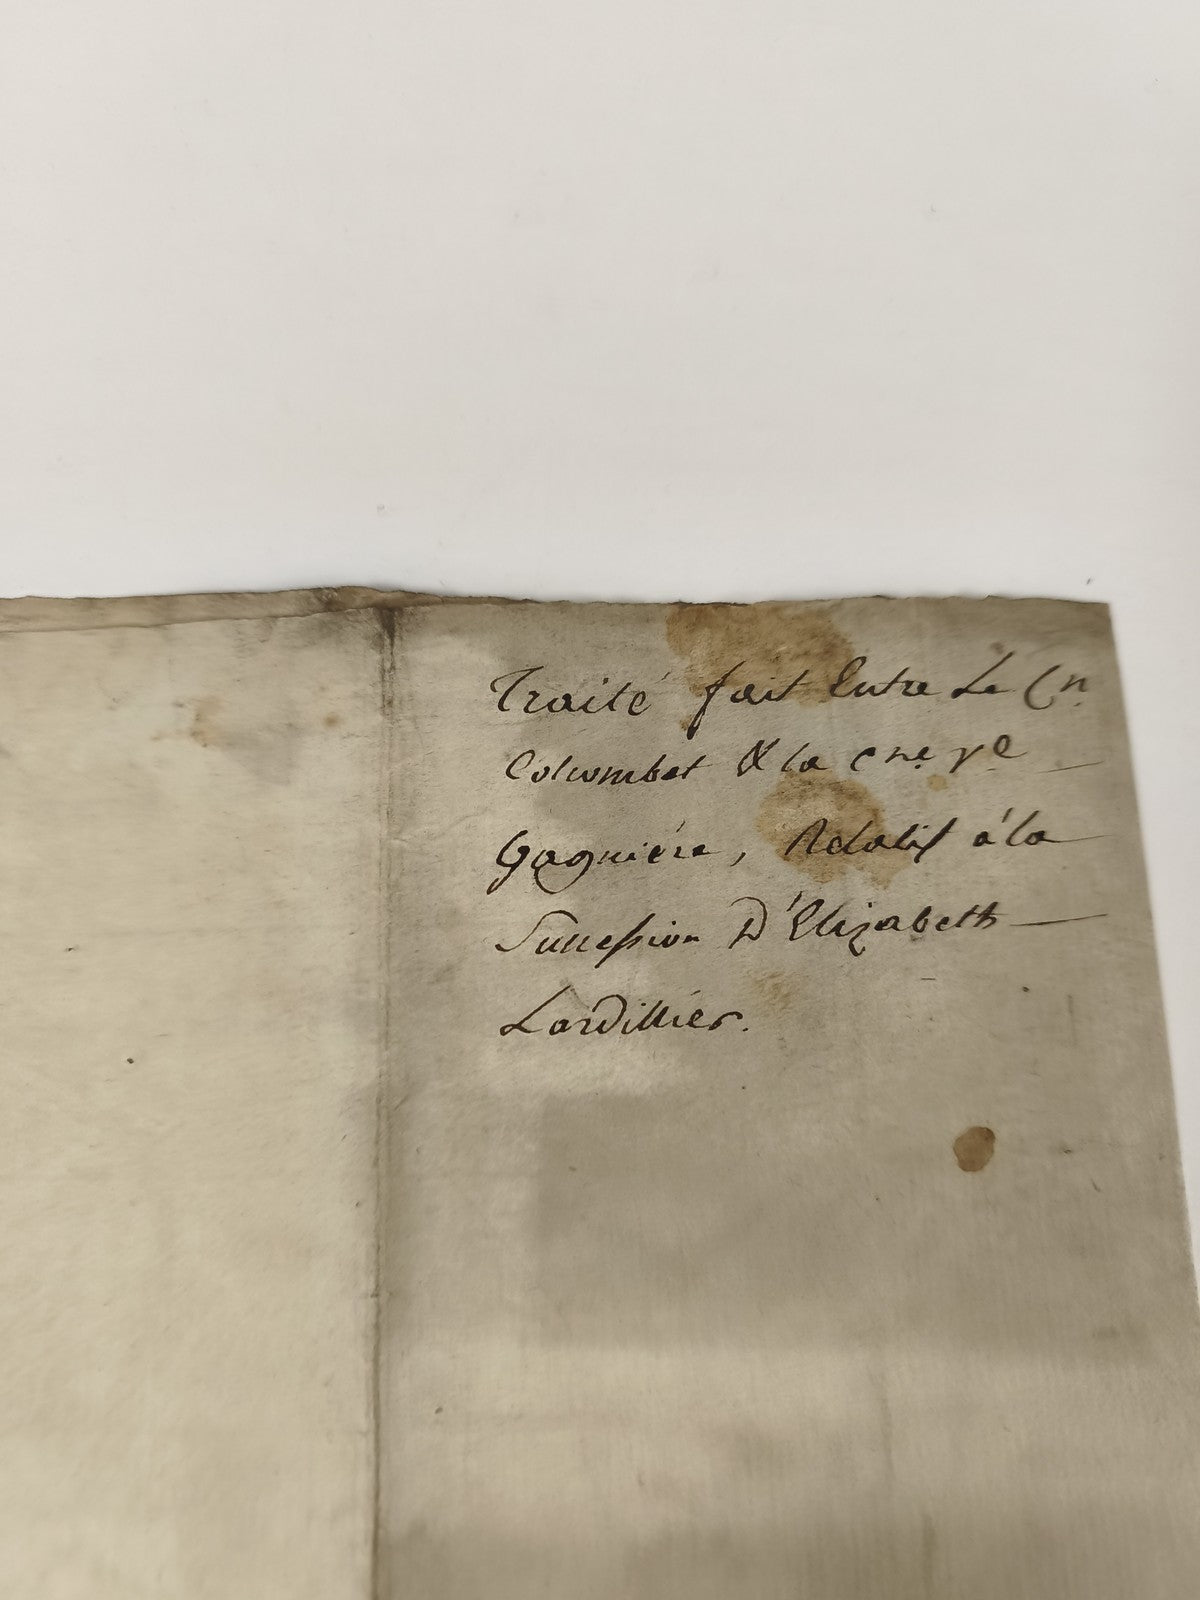 Traité fait Entre Le Cn.
Colcombet & la Cne. ve
Gagniére, Relatif à la
Succession D'Elizabeth
Lardillier.